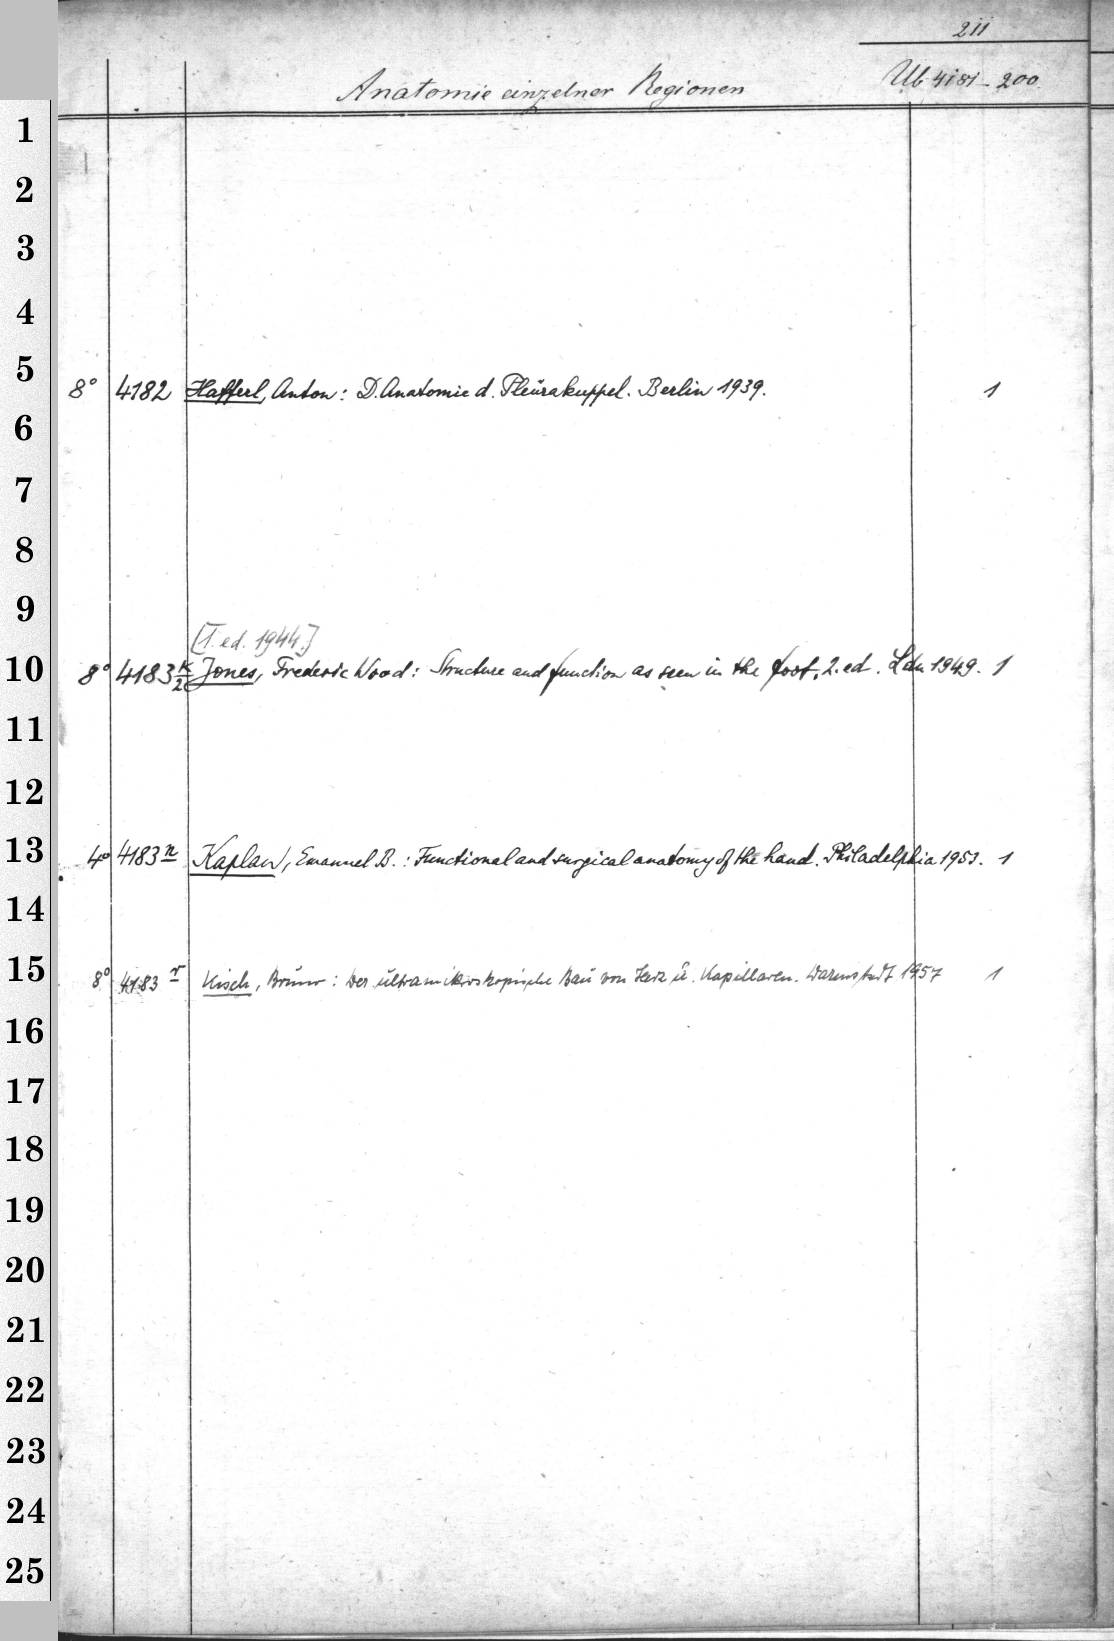 211
Anatomie einzelner Regionen Ub 4181-200
1
2
3
4
5
8° 4182 Hafferl, Anton: D. Anatomie d. Pleurakuppel. Berlin 1939. 1
6
7
8
9
[1. ed. 1944.]
10 8° 4183 k/2 Jones, Frederic Wood: Structure and function as seen in the foot. 2. ed. Ldn 1949. 1
11
12
13 4° 4183 n Kaplan, Emanuel B.: Functional and surgical anatomy of the hand. Philadelphia 1953. 1
14
15 8° 4183 r Kisch, Bruno: Der ultramikroskopische Bau von Herz u. Kapillaren. Darmstadt 1957 1
16
17
18
19
20
21
22
23
24
25